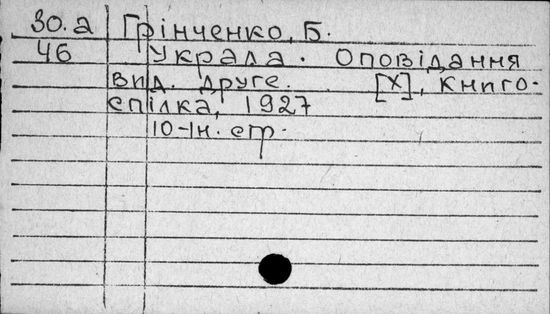 30.а Грінченко, Б.
46 Украла. Оповідання
Вид. друге. [X], Книго-
спілка, 1927
10-Ін. стр.